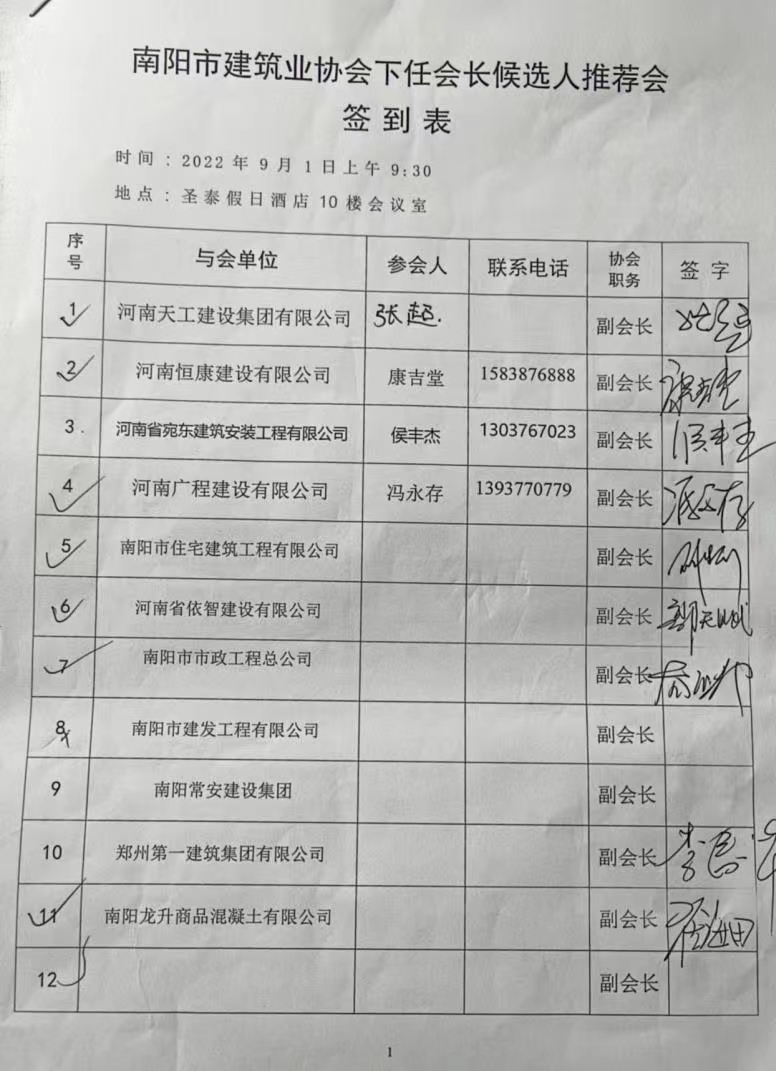 南阳市建筑业协会下任会长候选人推荐会
签到表
时间：2022年9月1日上午9:30
地点：圣泰假日酒店10楼会议室
序号 与会单位 参会人 联系电话 协会职务 签字
1 河南天工建设集团有限公司 张起. 副会长
2 河南恒康建设有限公司 康吉堂 1583876888 副会长 康吉堂
3. 河南省宛东建筑安装工程有限公司 侯丰杰 1303767023 副会长 侯丰杰
4 河南广程建设有限公司 冯永存 1393770779 副会长 冯永存
5 南阳市住宅建筑工程有限公司 副会长
6 河南省依智建设有限公司 副会长
7 南阳市市政工程总公司 副会长
8 南阳市建发工程有限公司 副会长
9 南阳常安建设集团 副会长
10 郑州第一建筑集团有限公司 副会长
11 南阳龙升商品混凝土有限公司 副会长
12 副会长
1